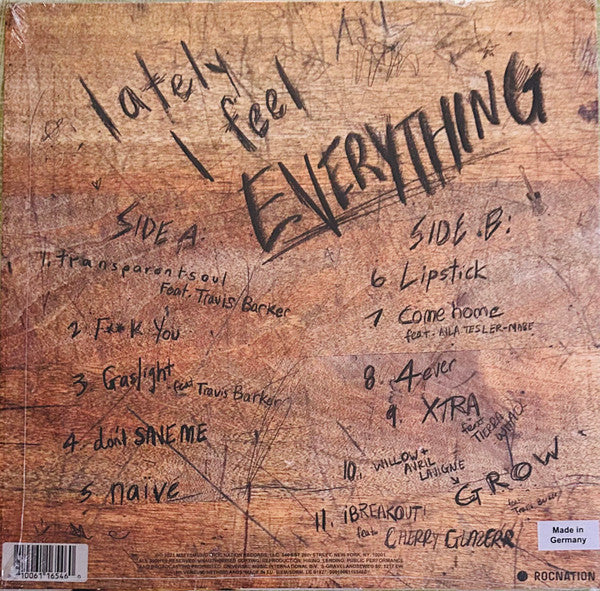 lately
I feel
EVERYTHING
SIDE A:
1. transparentsoul
feat. Travis Barker
2 F**K You
3. Gaslight feat Travis Barker
4. don't SAVE ME
5. naïve
SIDE B:
6 Lipstick
7 Come home
feat. AYLA TESLER-MABE
8. 4ever
9. XTRA
feat. TIERRA WHACK
10. WILLOW + AVRIL LAVIGNE
GROW
feat. Travis Barker
11. ¡BREAKOUT!
feat. CHERRY GLAZERR
Made in
Germany
10061 16546
ROCNATION